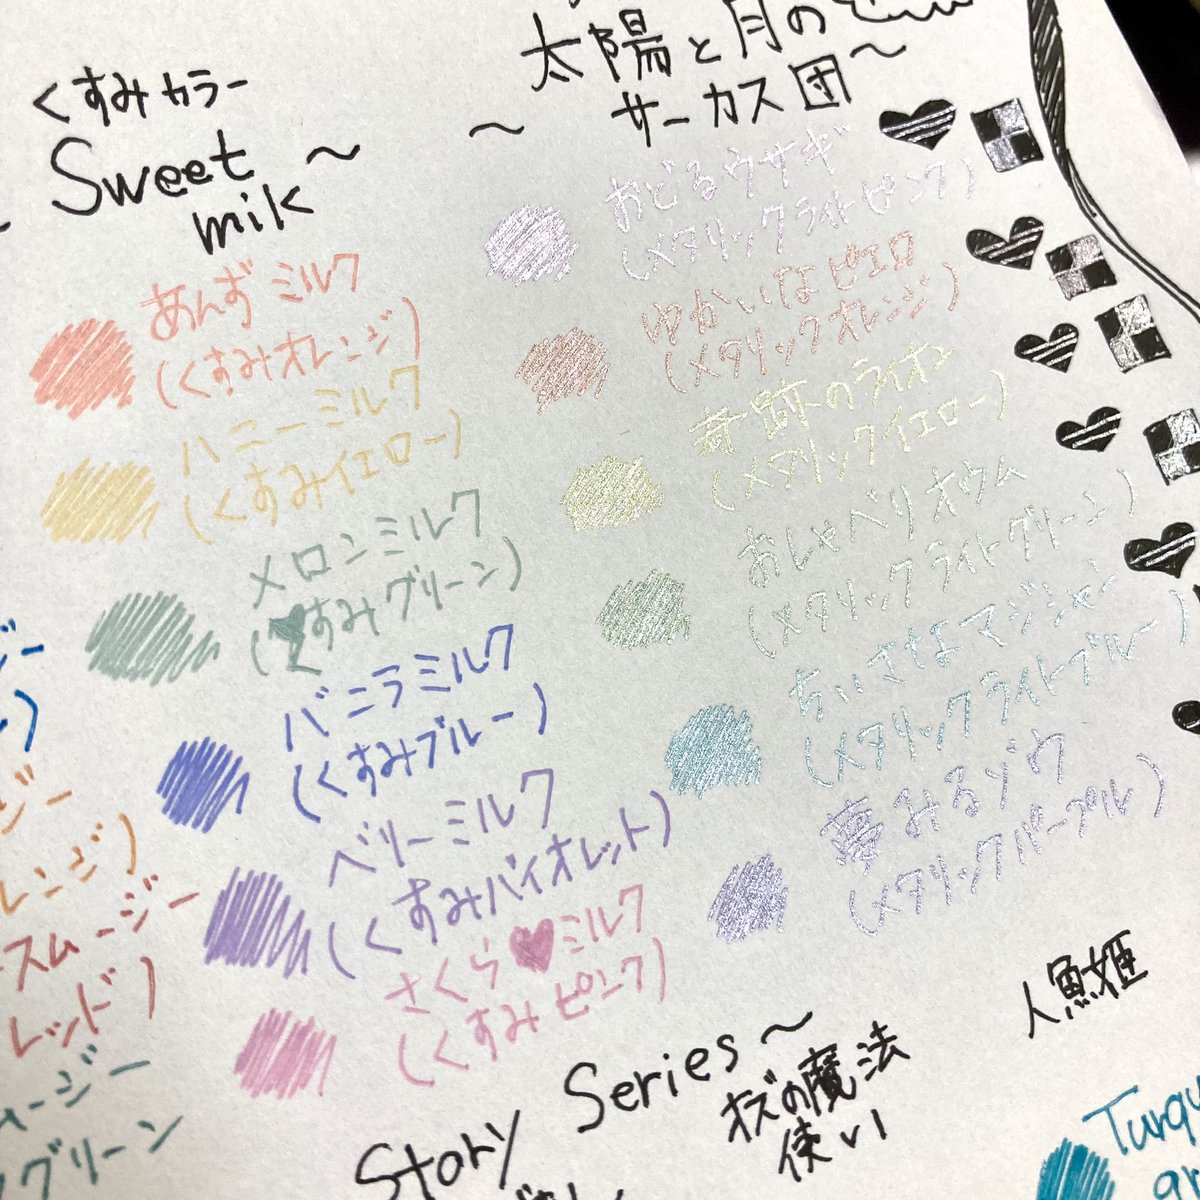 くすみカラー
Sweet ～
milk
あんずミルク
(くすみオレンジ)
ハニーミルク
(くすみイエロー)
メロンミルク
(くすみグリーン)
バニラミルク
(くすみブルー)
ベリーミルク
(くすみバイオレット)
さくら♥ミルク
(くすみピンク)
太陽と月の
～ サーカス団～
おどるウサギ
(メタリックライトピンク)
ゆかいなピエロ
(メタリックオレンジ)
奇跡のライオン
(メタリックイエロー)
おしゃべりオウム
(メタリックライトグリーン)
ちいさなマジシャン
(メタリックライトブルー)
夢みるゾウ
(メタリックパープル)
スムージー
レッド)
グリーン
Story Series～
オズの魔法
使い
人魚姫